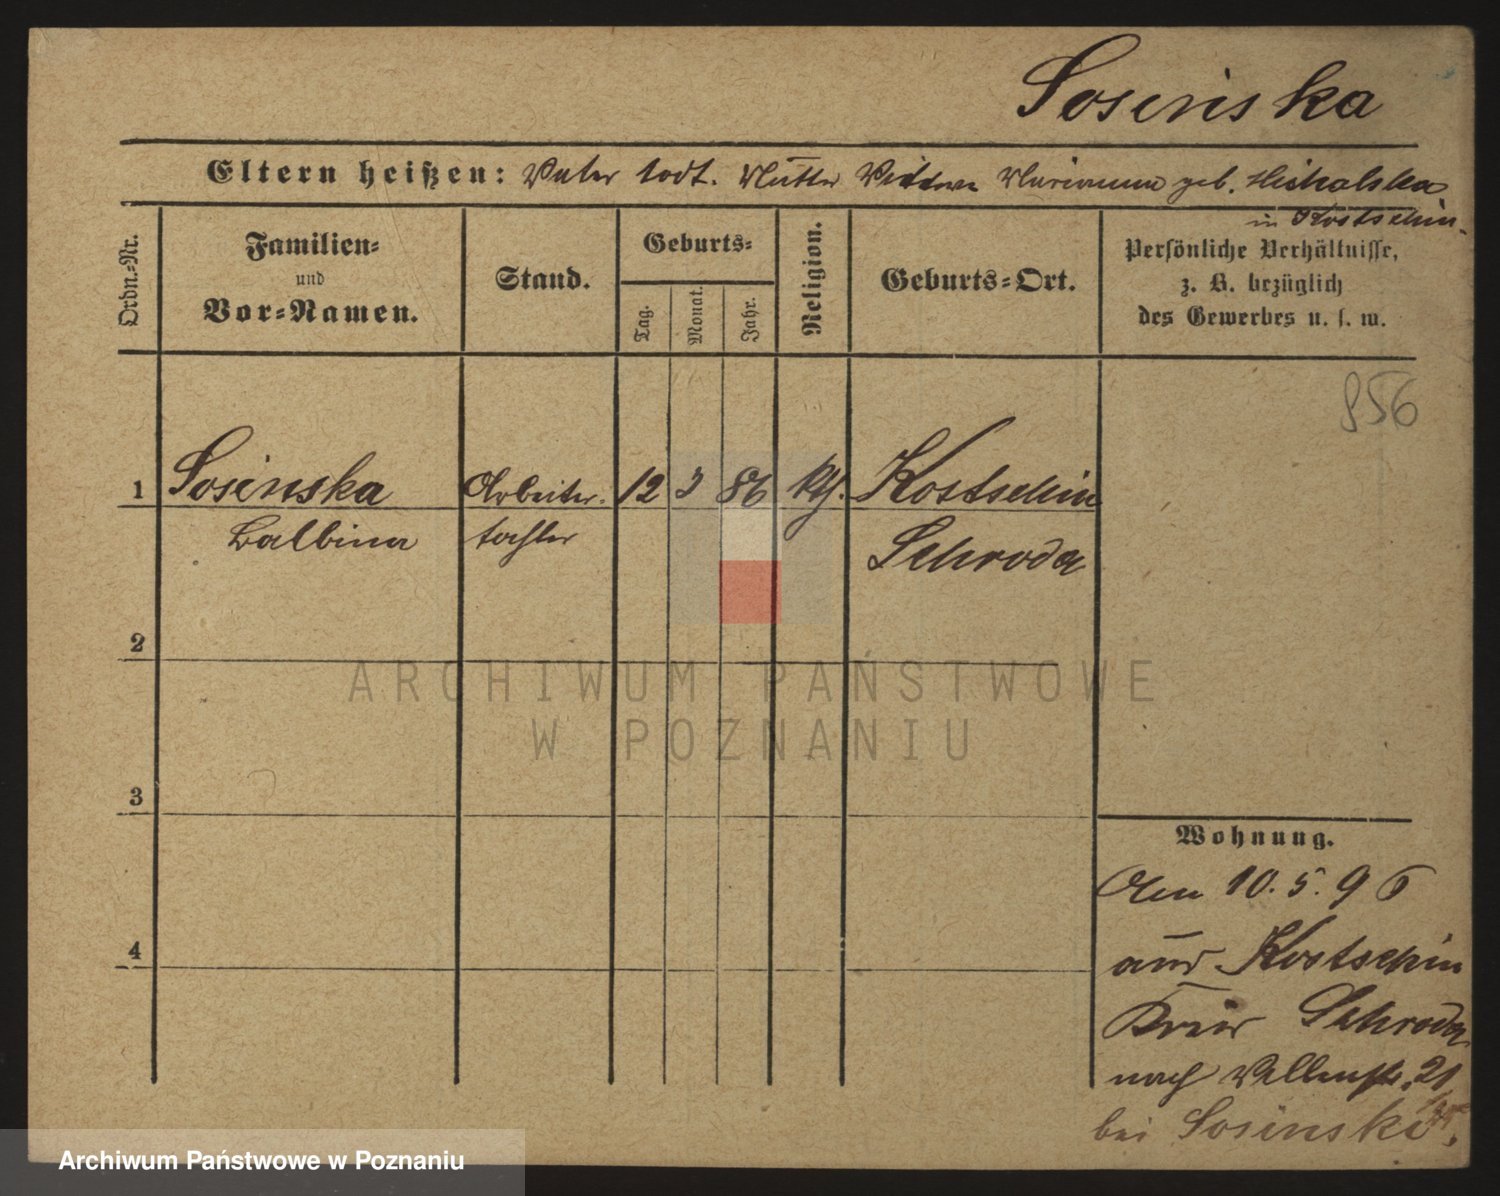 Sosinska
Eltern heißen: Vater todt. Mutter Wittwe Marianna geb. Michalska
in Kostschin.
Ordn.=Nr.
Familien=
und
Vor=Namen.
Stand.
Geburts=
Tag.
Monat.
Jahr.
Religion.
Geburts=Ort.
Persönliche Verhältnisse,
z. B. bezüglich
des Gewerbes u. s. w.
856
1 Sosinska Arbeiter= 12 3 86 kth. Kostschin
Balbina tochter Schroda
2
3
4
Wohnung.
Am 10. 5. 96
aus Kostschin
Kreis Schroda
nach 21
bei Sosinski.
ARCHIWUM PAŃSTWOWE
W POZNANIU
Archiwum Państwowe w Poznaniu